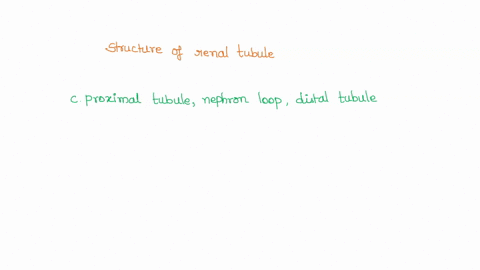 Structure of renal tubule
c. proximal tubule, nephron loop, distal tubule